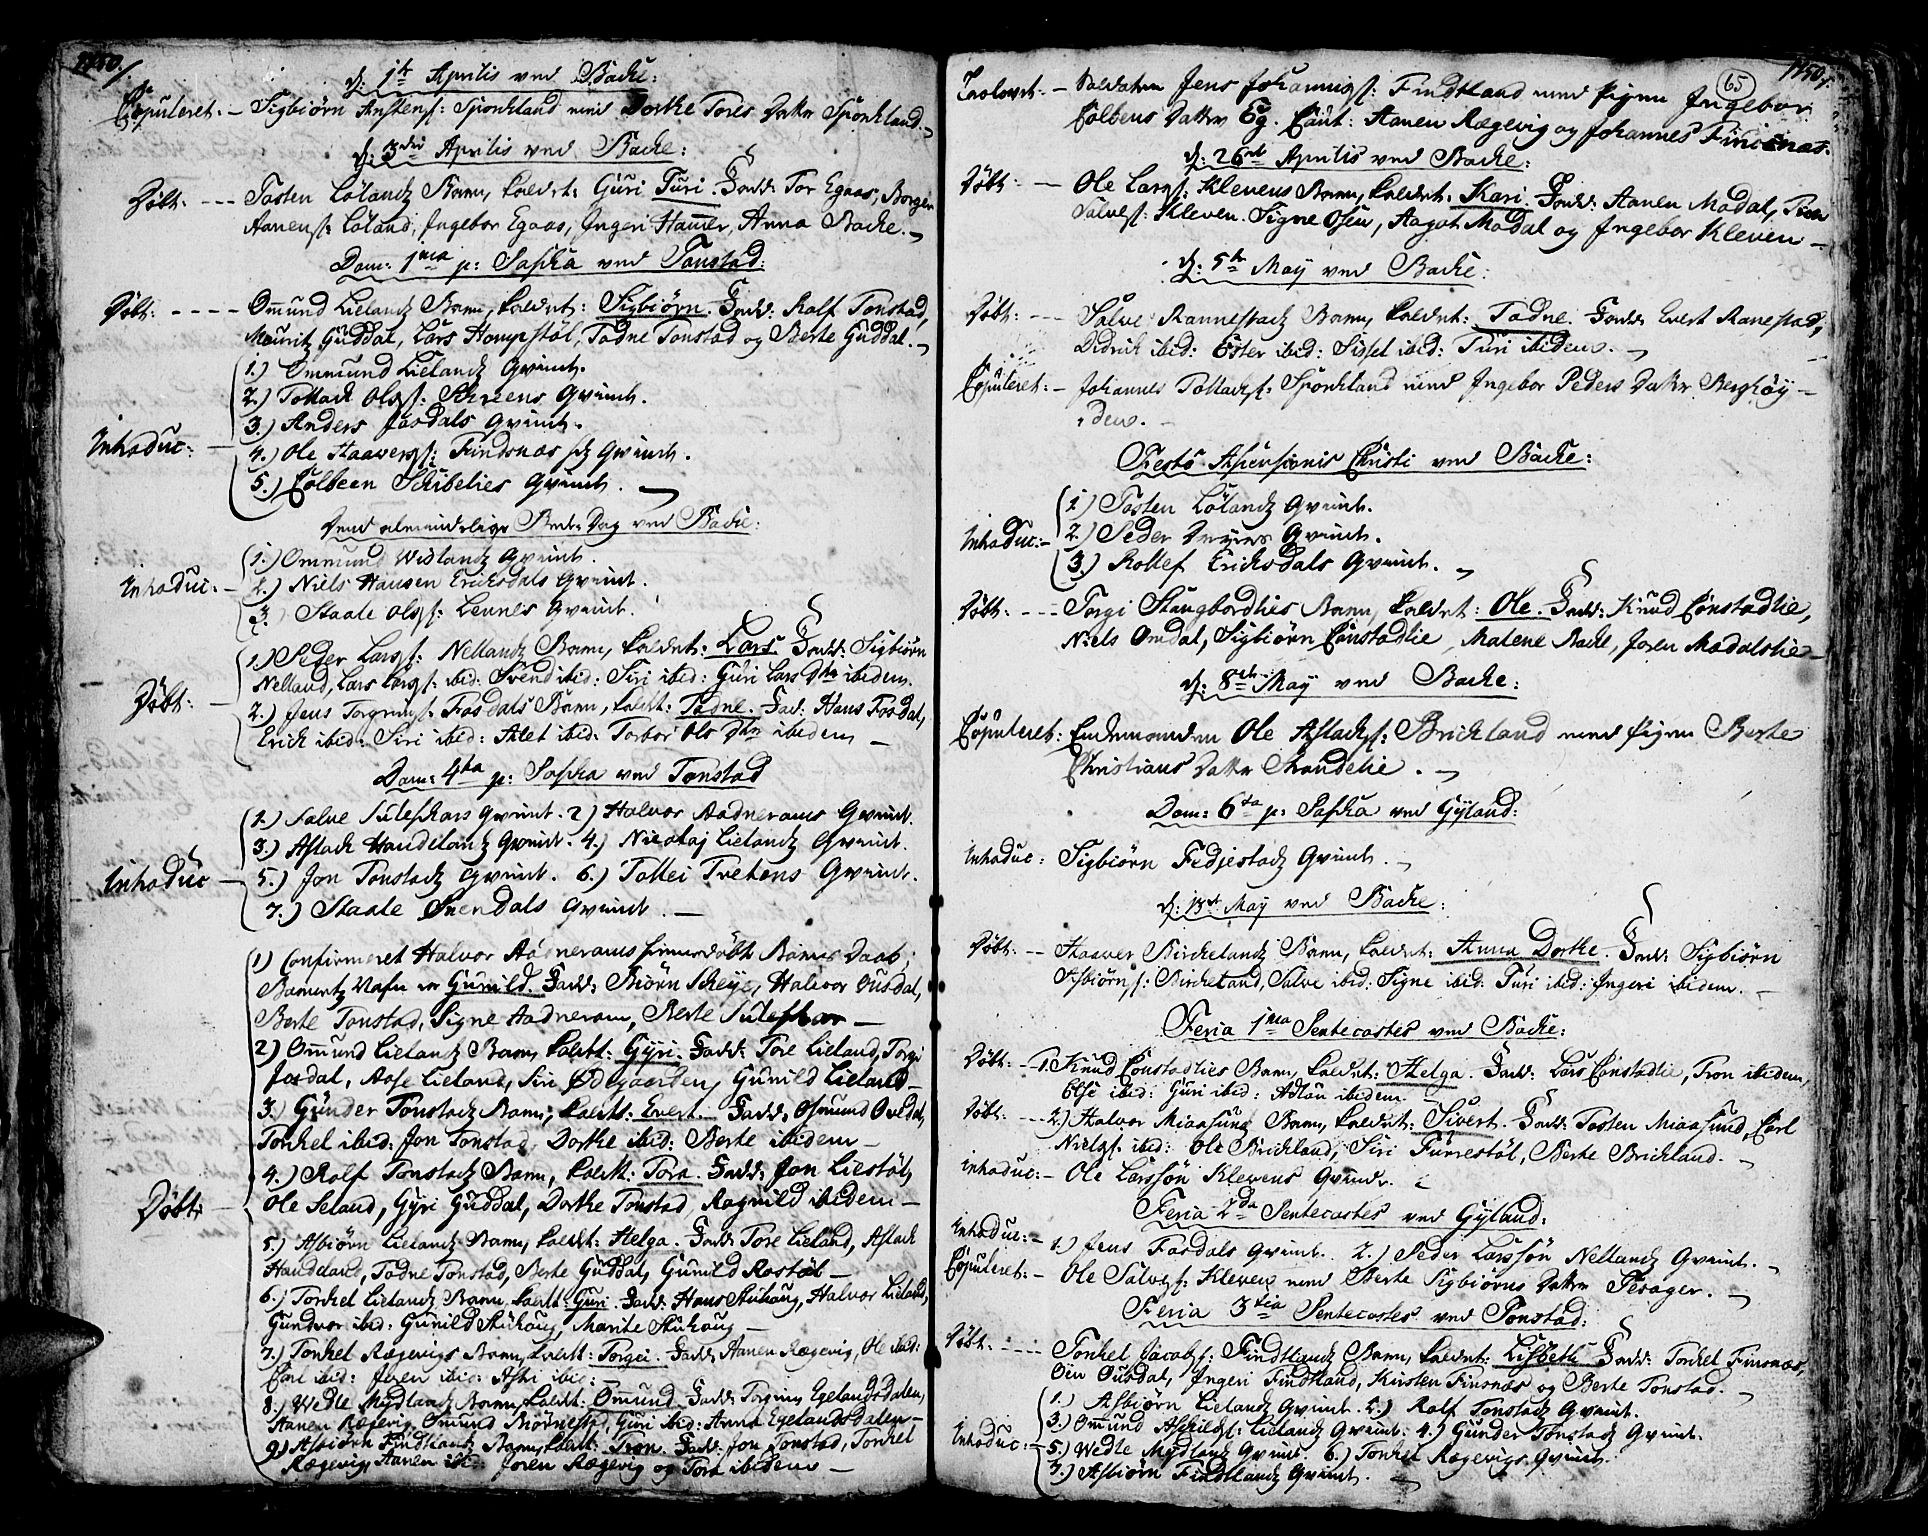 1750.
d: 1te Aprilis ved Backe:
Copuleret. – Sigbiörn Anstens: Sponkland med Dorthe Tores Datter Sponkland.
d: 3die Aprilis ved Backe:
Döbt: --- Tosten Lölandz Barn, kaldet: Guri Turi. Fadd: Tor Egaas, Borger
Aanens: Löland, Ingebor Egaas, Ingeri Hauer, Anna Backe.
Dom: 1ma p: Pascha ved Tonstad:
Döbt: ---- Ommund Lielandz Barn, kaldet: Sigbiörn. Fadd: Rolf Tonstad,
Mauritz Guddal, Lars Hompstöl, Todne Tonstad og Berte Guddal.
1.) Ommund Lielandz Qvinde.
2.) Tollach Ols: Skreens Qvinde.
3.) Anders Josdals Qvinde.
Introduc: 4.) Ole Staavers: Findsnæs Qvinde.
5.) Colbeen Schibelies Qvinde.
Dend almindelige Bede Dag ved Backe:
1.) Ommund Widlandz Qvinde.
Introduc: – 2.) Niels Hansen Ericksdals Qvinde.
3. Staale Ols: Lennes Qvinde.
1.) Peder Lars: Nellandz Barn, kaldet: Lars Fadd: Sigbiörn
Nelland, Lars Lars: ibid: Svend ibid: Siri ibid: Guri Lars Dtr ibidem.
Döbt: – 2.) Jens Torgrims: Fosdals Barn, kaldt: Todne. Fad: Hans Fosdal,
Erick ibid: Siri ibid: Alet ibid: Torbor Ols Dtr ibidem –
Dom: 4ta p: Pascha ved Tonstad
1.) Salve Sulephars Qvinde. 2) Halvor Aadnerams Qvinde.
3.) Aslach Haudelandz Qvinde. 4.) Nicolaj Lielandz Qvinde.
Introduc 5.) Jon Tonstadz Qvinde. 6.) Tollei Tvetens Qvinde.
7.) Staale Svendals Qvinde. –
1) Confirmeret Halvor Aadnerams hiemmedöbte Barns Daab;
Barnets Nafn er Gunild. Fadd: Biörn Skeije, Halvor Ousdal,
Berte Tonstad, Signe Aadneram, Berte Sulephar –
2) Omund Lielandz Barn, kaldt: Gyri. Fadd: Tore Lieland, Torgi
Josdal, Aase Lieland, Siri Ødegaarden, Gunild Lieland –
3.) Gunder Tonstadz Barn, kaldt: Evert. Fadd: Osmund Ovedal,
Tonkel ibid: Jon Tonstad, Dorthe ibid: Berte ibidem –
4.) Rolf Tonstadz Barn, kaldt: Tora. Fadd: Jon Liestöl,
Döbt: Ole Seland, Gyri Guddal, Dorthe Tonstad Ragnild ibidem –
5.) Asbiörn Lielandz Barn, kaldt: Helga. Fadd: Tore Lieland, Aslach
Haudeland, Todne Tonstad, Berte Guddal, Gunild Rostöl –
6.) Tonkel Lielandz Barn, kaldt: Guri. Fadd: Hans Stuhaug, Halvor Lieland,
Gundvor ibid: Gunild Stuhaug, Marite Stuhaug –
7.) Tonkel Rægevigs Barn, kaldt: Torgei. Fadd: Aanen Rægevig, Ole ibid:
Carl ibid: Joren ibid: Astri ibid:
8.) Wedle Mydlandz Barn, kaldt: Ommund. Fadd: Torgrim Egelandsdalen,
Aanen Rægevig, Omund Biörnestad, Guri ibid: Anna Egelandsdalen –
9.) Asbiörn Findtlandz Barn, kaldt: Tron. Fadd: Jon Tonstad, Tonkel
Rægevig, Aanen ibid: Joren Rægevig og Tora ibidem –
1750.
65
Trolovet. – Soldaten Jens Johannis: Findtland med Pigen Ingebor
Colbens Datter Eg. Caut: Aanen Rægevig og Johannes Finsnæs.
d: 26de Aprilis ved Backe:
Döbt: – Ole Lars: Klevens Barn, kaldet: Kari. Fadd: Aanen Modal, Tron
Salves: Kleven. Signe Osen, Aagot Modal og Ingebor Kleven –
d: 5te May ved Backe:
Döbt: --- Salve Rannestadz Barn, kaldet: Todne. Fadd: Evert Ranestad,
Didrich ibid: Ester ibid: Sissel ibid: Turi ibidem.
Copuleret: – Johannes Tollachs: Sponkland med Ingebor Peders Datter Berghöy –
idem. –
Festo Ascensionis Christi ved Backe:
1.) Tosten Lölandz Qvinde.
Introduc: – 2.) Peder Qvinde.
3.) Rollef Ericksdals Qvinde.
Döbt: --- Torgi Stangbordlies Barn, kaldet: Ole. Fadd: Knud Constadlie,
Niels Omdal, Sigbiörn Constadlie, Malene Backe, Joren Modalslie –
d: 8de May ved Backe:
Copuleret: Enkemanden Ole Aslachs: Brickland med Pigen Berte
Christians Datter Strandelie.
Dom: 6ta p: Pascha ved Gyland:
Introduc: Sigbiörn Fedjestadz Qvinde.
d: 13de May ved Backe:
Döbt: -- Staaver Birckelandz Barn, kaldet: Anna Dorthe. Fadd: Sigbiörn
Asbiörns: Birckeland, Salve ibid: Signe ibid: Turi ibid: Ingeri ibidem. –
Feria 1ma Pentecostes ved Backe:
Döbt: -- 1. Knud Constadlies Barn, kaldet: Helga. Fadd: Lars Constadlie, Tron ibidem,
Else ibid: Guri ibid: Adlau ibidem.
Döbt: --- 2.) Halvor Miaasunds Barn, kaldet: Sivert. Fadd: Tosten Miaasund, Carl
Niels: ibid: Ole Brickland, Siri Furrestöl, Berte Brickland.
Introduc: – Ole Larssön Klevens Qvinde.
Feria 2da Pentecostes ved Gyland:
Introduc: – 1.) Jens Fosdals Qvinde. 2.) Peder Larssön Nellandz Qvinde.
Copuleret: – Ole Salves: Kleven med Berte Sigbiörns Datter Tesager.
Feria 3tia Pentecostes ved Tonstad:
Döbt: ---- Tonkel Jacobs: Findtlandz Barn, kaldet: Lisbeth Fadd: Tonkel Finsnæs,
Oiu Ousdal, Ingeri Findtland, Kirsten Finsnæs og Berte Tonstad.
1.) Asbiörn Lielandz Qvinde. 2.) Rolf Tonstadz Qvinde.
3.) Omund Askilds: Lielandz Qvinde: 4.) Gunder Tonstadz Qvinde.
Introduc: – 5.) Wedle Mydlandz Qvinde. 6.) Tonkel Rægevigs Qvinde.
7.) Asbiörn Findtlandz Qvinde.